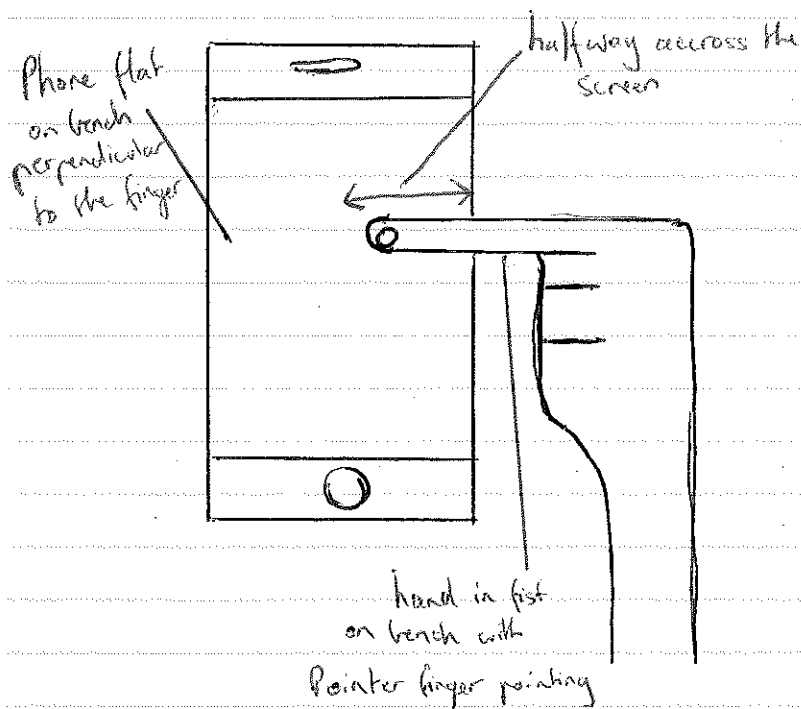 Phone flat
on bench
perpendicular
to the finger
halfway accross the
screen
hand in fist
on bench with
Pointer finger pointing